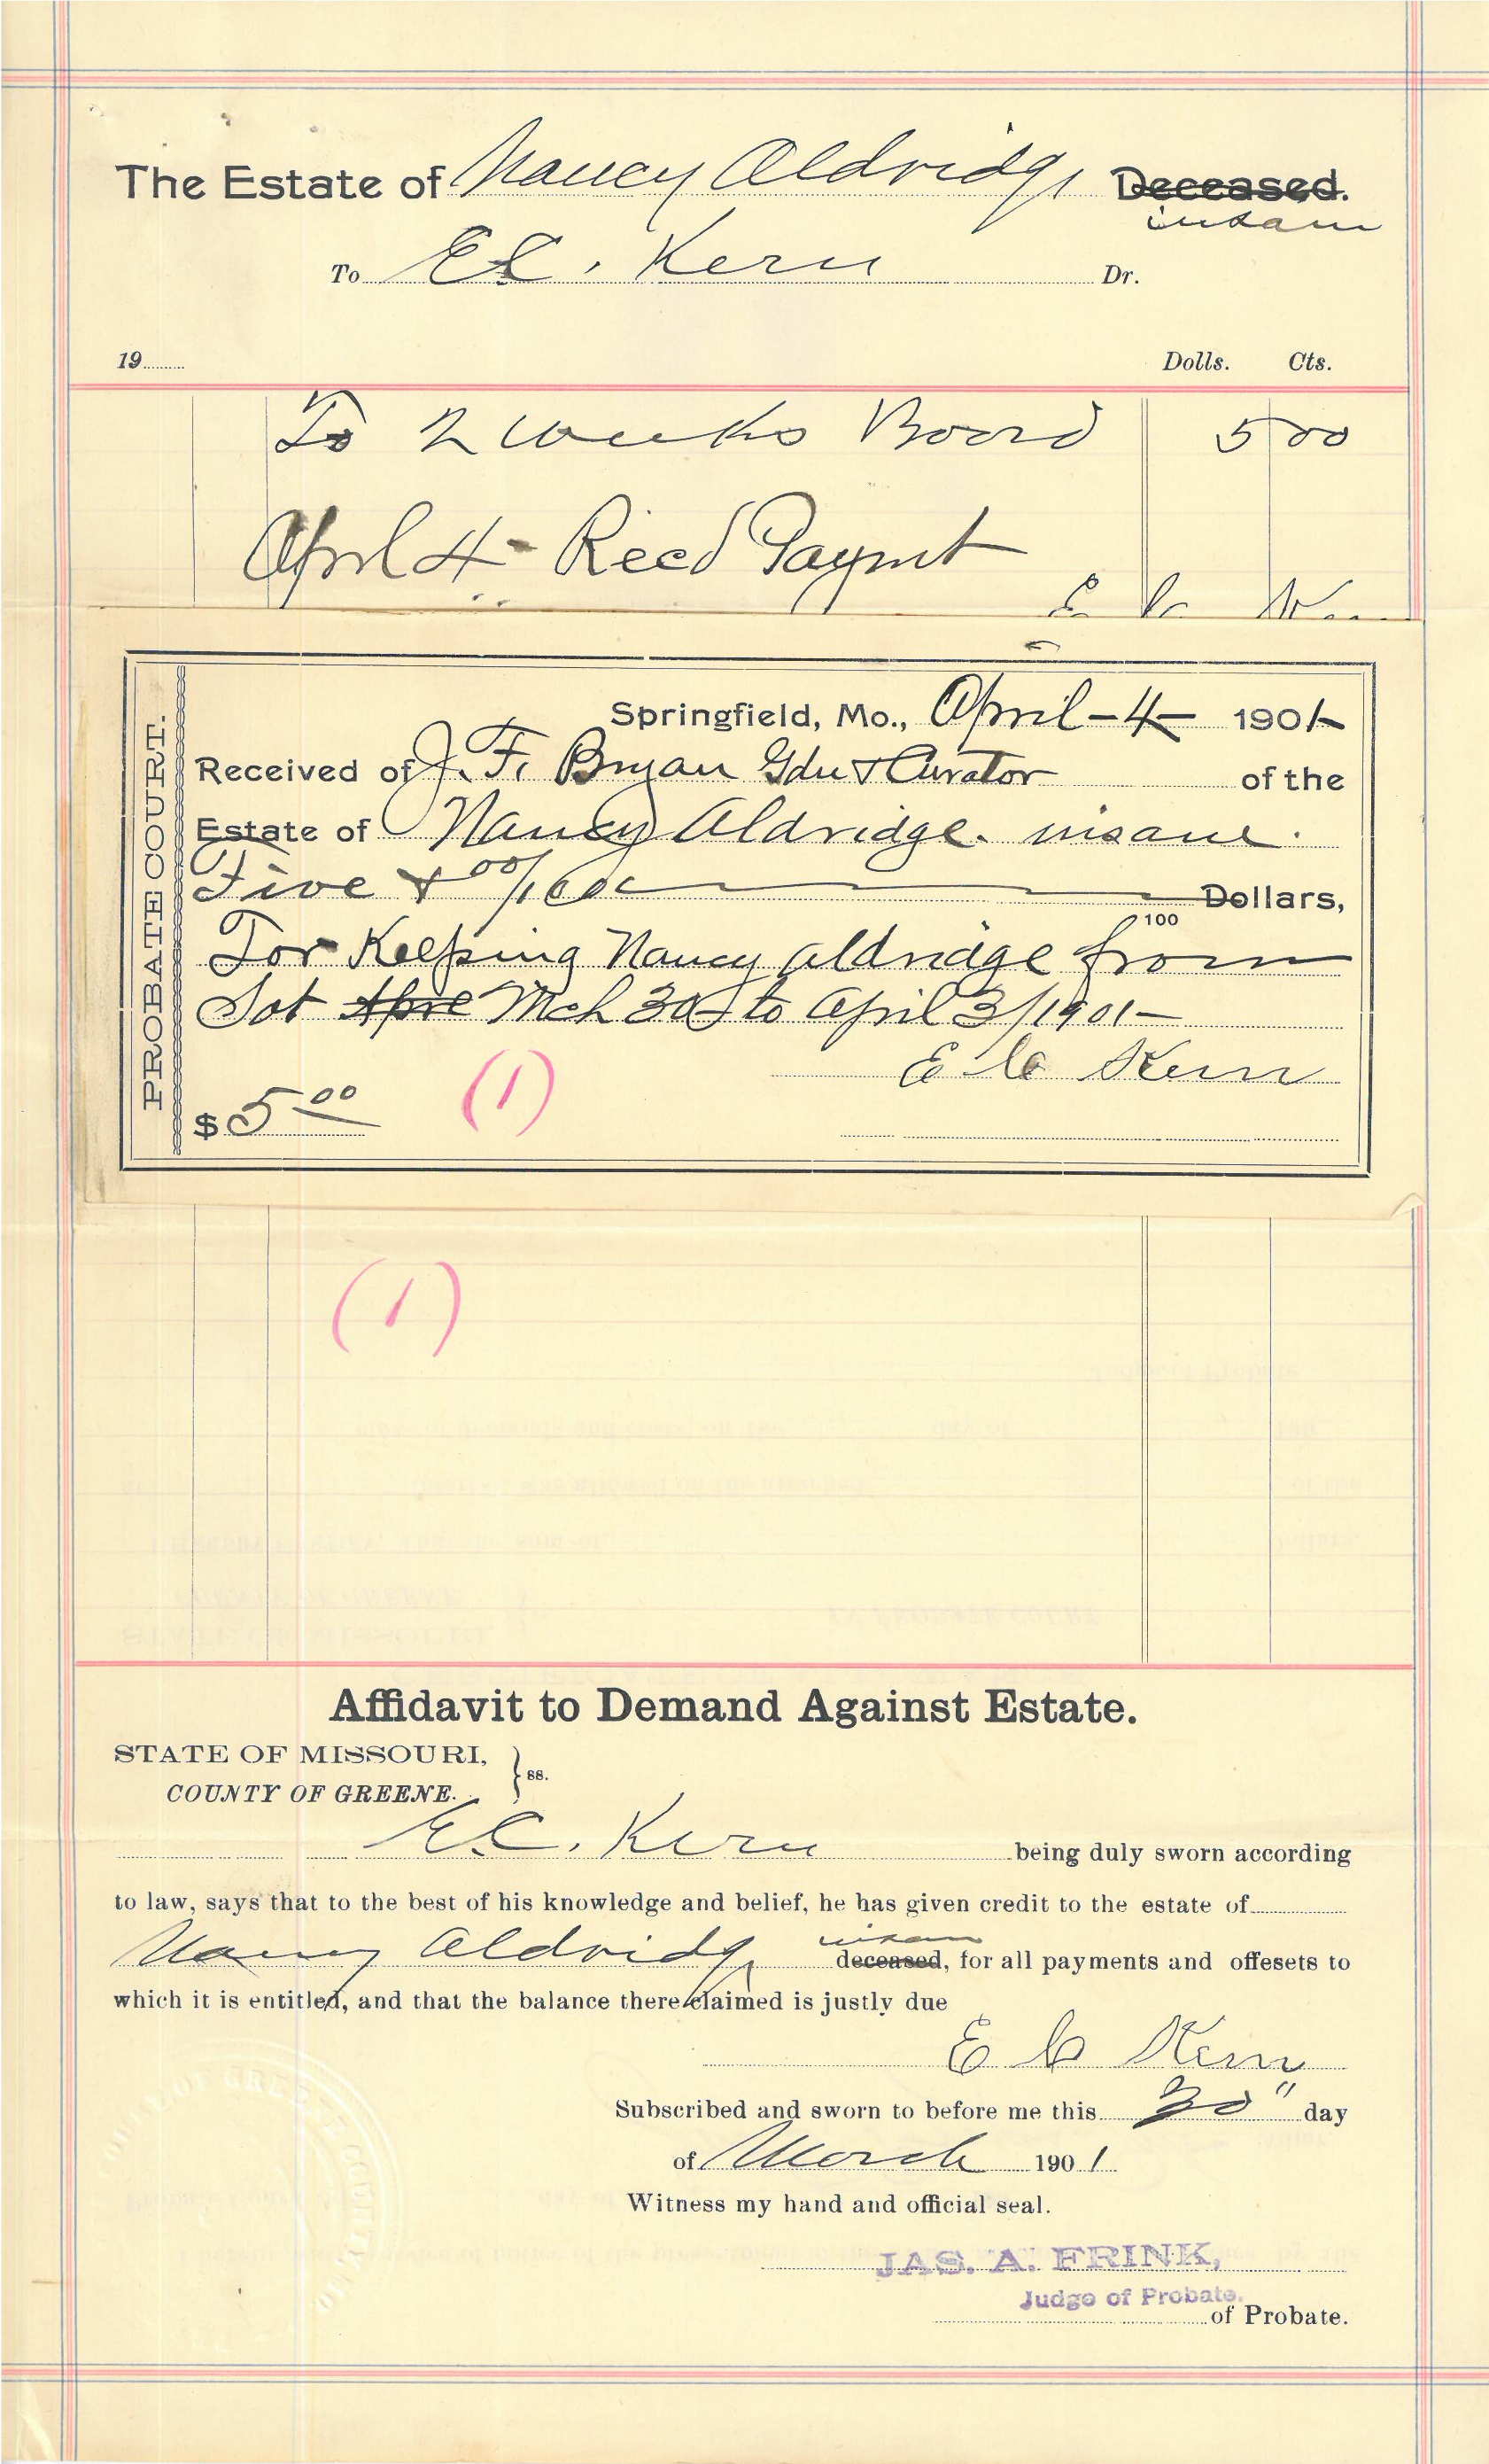 The Estate of Nancy Aldridge Deceased.
insane
To E.C. Kern Dr.
19 Dolls. Cts.
To 2 weeks Board 5 00
April 4- Recd Paymt
E C Kern
Springfield, Mo., April-4- 1901-
PROBATE COURT.
Received of J. F. Bryan Gdn & Curator of the
Estate of Nancy Aldridge. insane.
Five & 00/100 Dollars,
100
For Keeping Nancy Aldridge from
Sat Apre Mch 30 to April 3/1901-
E C Kern
$ 5 00
(1)
(1)
Affidavit to Demand Against Estate.
STATE OF MISSOURI,
COUNTY OF GREENE. } ss.
E.C. Kern being duly sworn according
to law, says that to the best of his knowledge and belief, he has given credit to the estate of
insane
Nancy Aldridge deceased, for all payments and offesets to
which it is entitled, and that the balance there claimed is justly due
E C Kern
Subscribed and sworn to before me this 30" day
of March 1901
Witness my hand and official seal.
JAS. A. FRINK,
Judge of Probate.
of Probate.